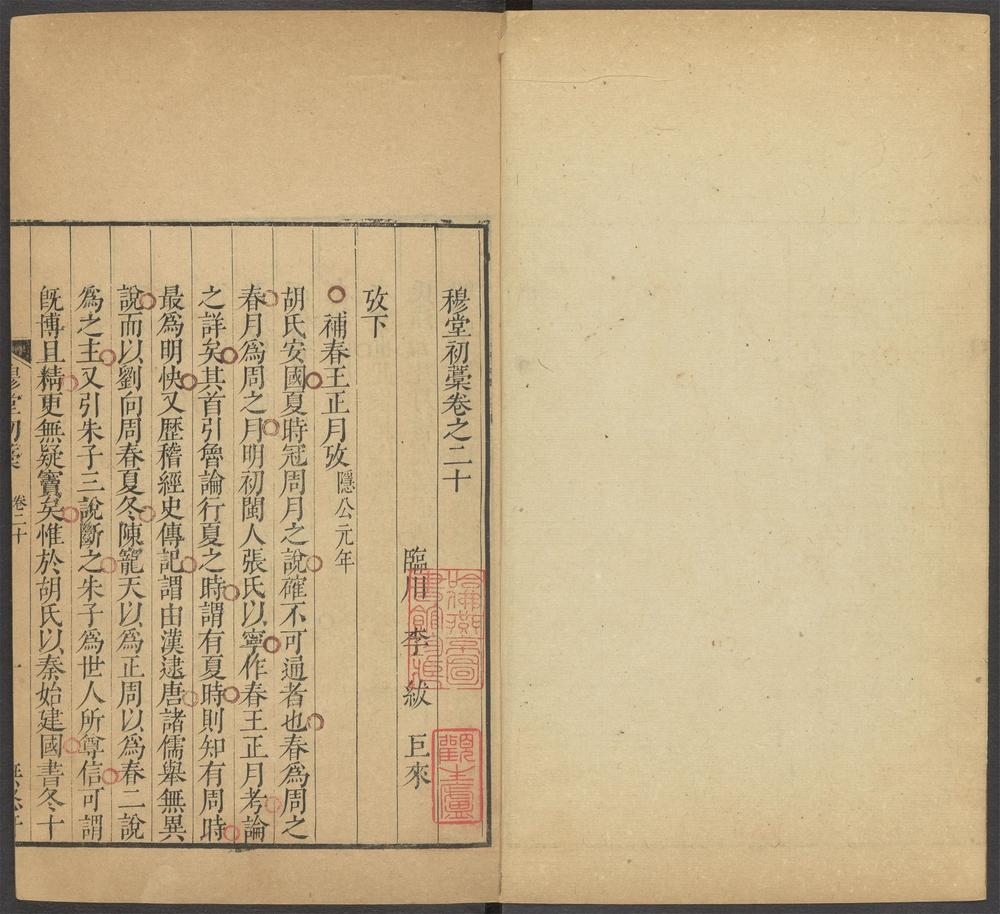 穆堂初藁卷之二十
臨川 李 紱 巨來
攷下
補春王正月攷隱公元年
胡氏安國夏時冠周月之說確不可遍者也春爲周之
春月爲周之月明初閩人張氏以寧作春王正月考論
之詳矣其首引魯論行夏之時謂有夏時則知有周時
最爲明快又歷稽經史傳記謂由漢逮唐諸儒舉無異
說而以劉向周春夏冬陳寵天以爲正周以爲春二說
爲之主又引朱子三說斷之朱子爲世人所尊信可謂
旣博且精更無疑竇矣惟於胡氏以秦始建國書冬十
穆堂初藁 卷二十 一